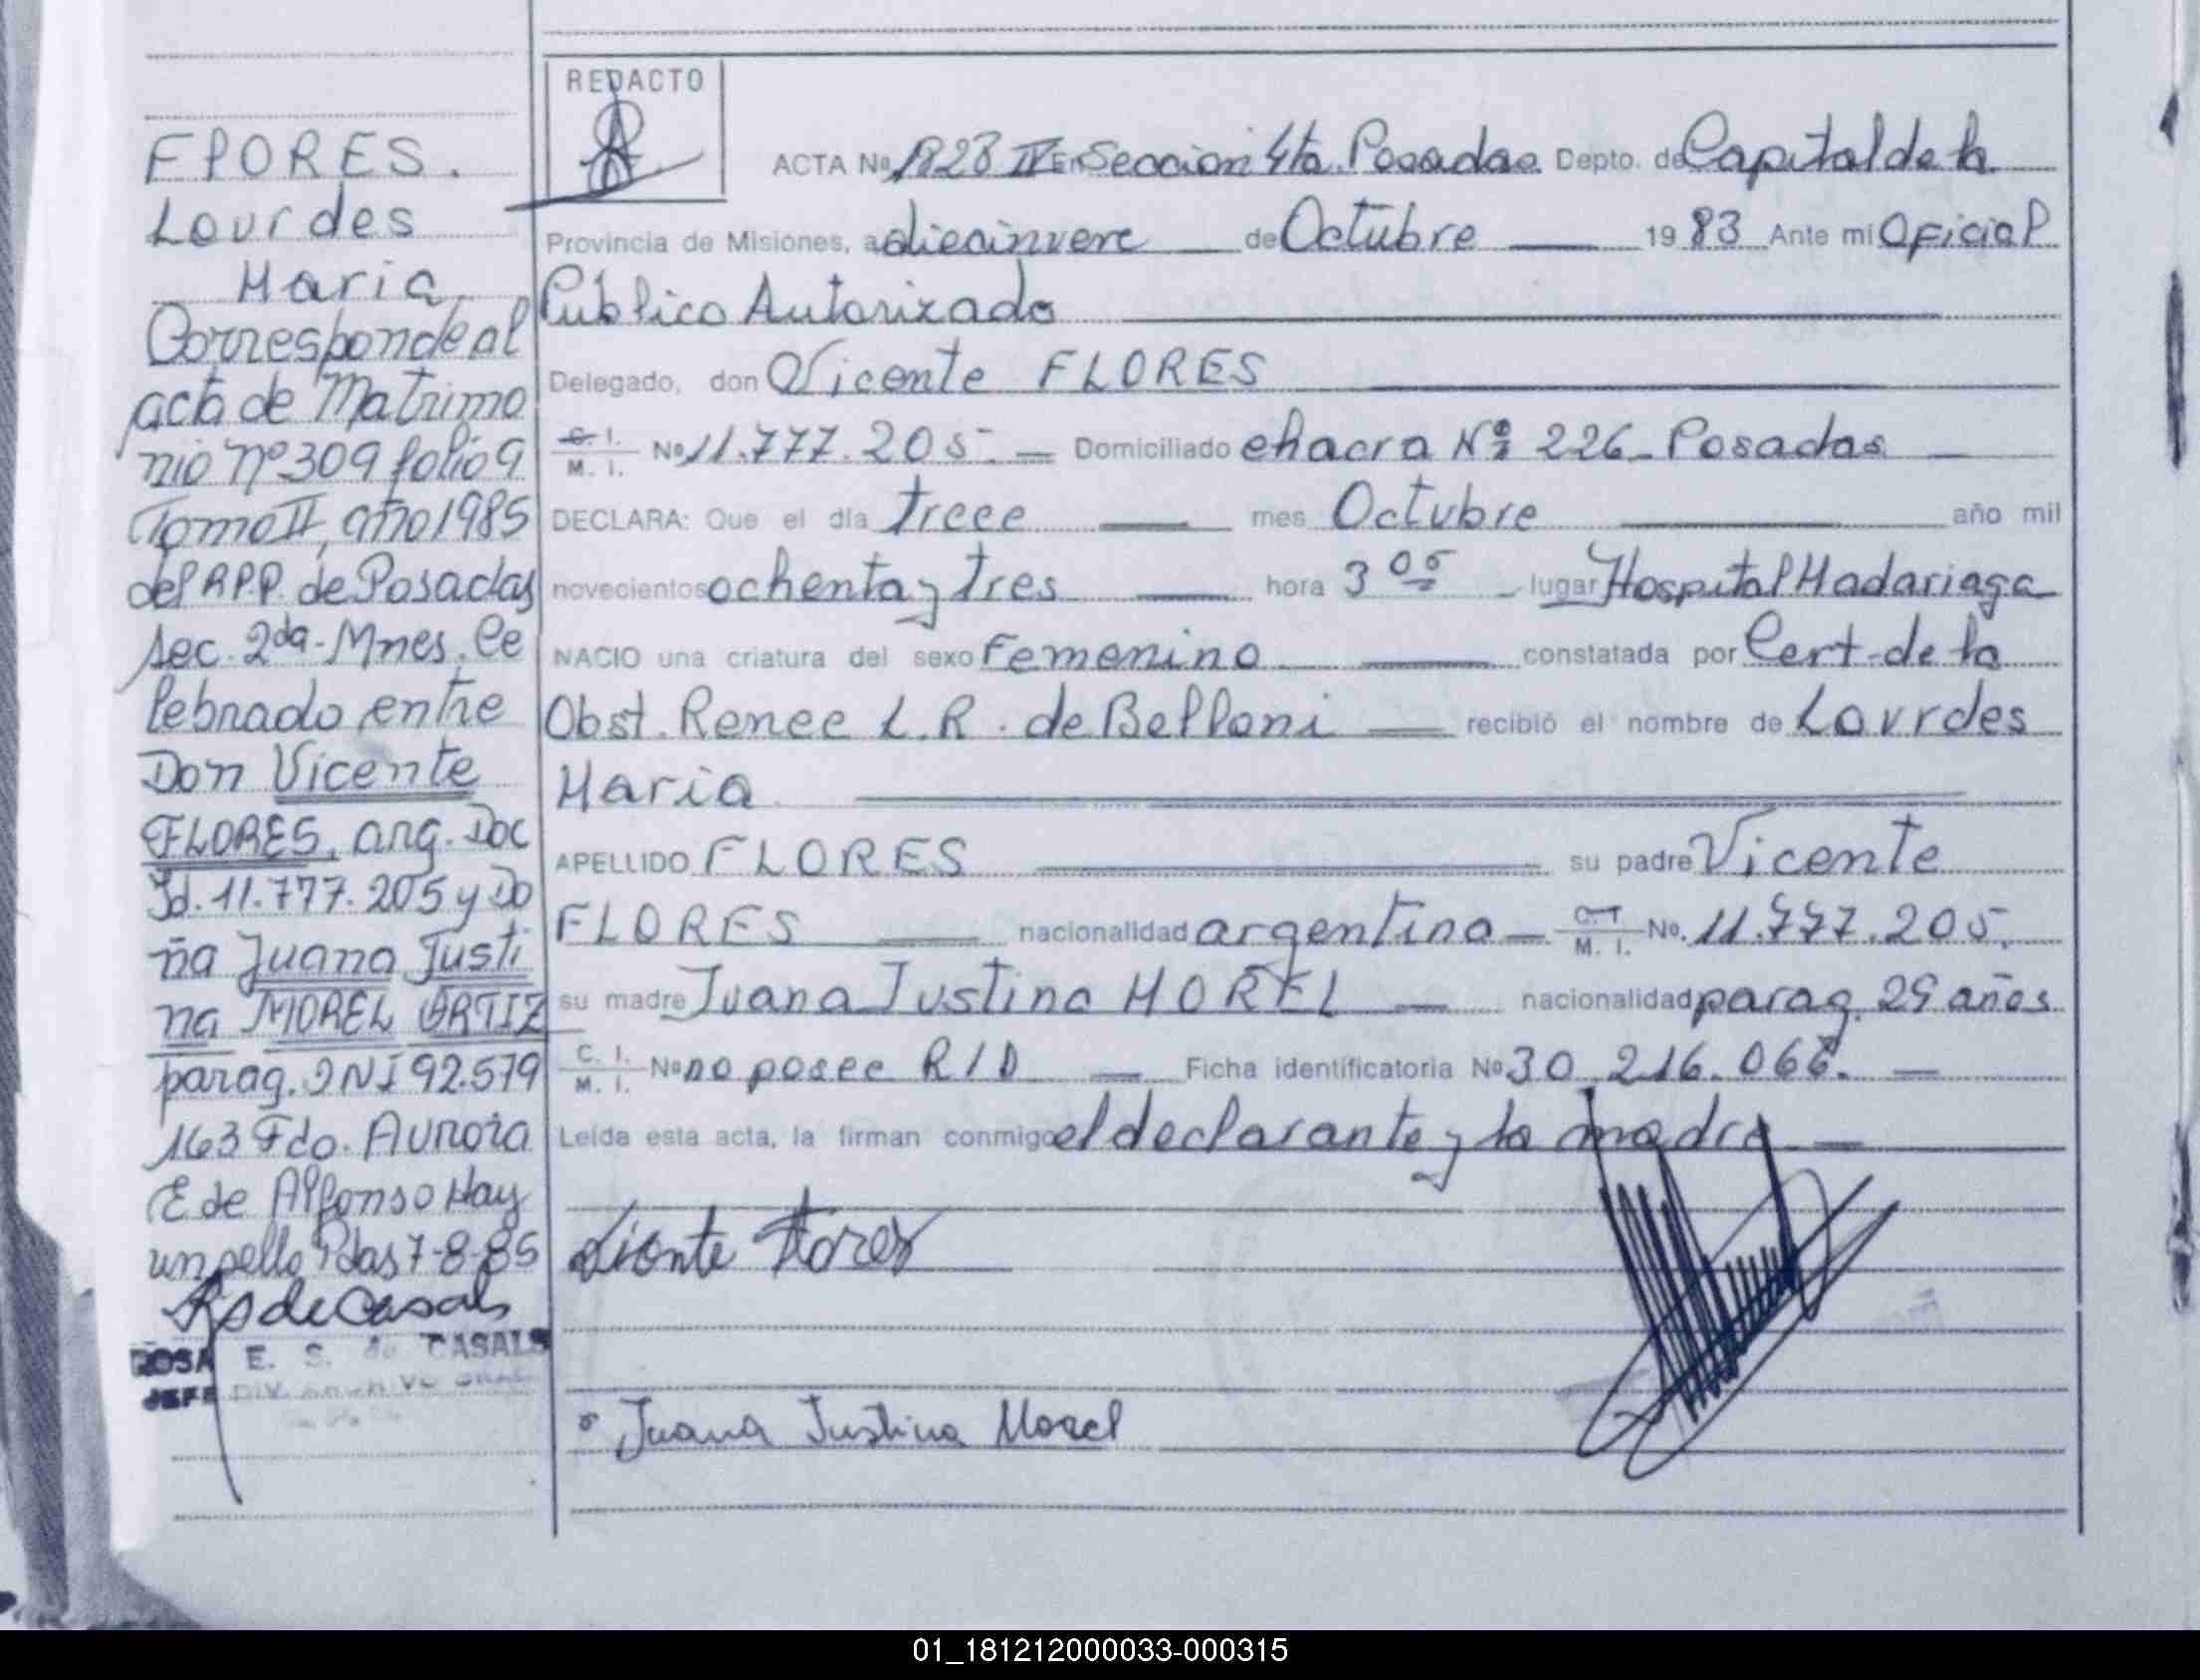 FLORES.
Lourdes
Maria
Corresponde al
acta de Matrimo
nio nº 309 folio 9
Tomo II, año 1985
del R.P.P. de Posadas
Sec. 2da - Mnes. Ce
lebrado entre
Don Vicente
FLORES, arg. Doc
Id. 11.777.205 y Do
ña Juana Justi
na MOREL ORTIZ
parag. INI 92.579
163 Fdo. Aurora
E de Alfonso Hay
un sello Pdas 7-8-85
RS de Casals
ROSA E. S. de CASALS
JEFE DIV.
REDACTO
ACTA Nº 1823 IV EN Seccion 4ta. Posadas Depto. de Capital de la
Provincia de Misiones, a diecinueve de Octubre 1983 Ante mí Oficial
Publico Autorizado
Delegado, don Vicente FLORES
C. I.
M. I. Nº 11.777.205 Domiciliado chacra Nº 226 - Posadas
DECLARA: Que el día trece mes Octubre año mil
novecientos ochenta y tres hora 3 05 lugar Hospital Madariaga
NACIO una criatura del sexo Femenino constatada por Cert. de la
Obst. Renee L.R. de Belloni recibió el nombre de Lourdes
Maria
APELLIDO FLORES su padre Vicente
FLORES nacionalidad argentina C. I.
M. I. No. 11.777.205.
su madre Juana Justina MOREL nacionalidad parag. 29 años
C. I.
M. I. Nº no posee R/D Ficha identificatoria Nº 30 216.066.
Leída esta acta, la firman conmigo el declarante y la madre
Vicente Flores
Juana Justina Morel
01_181212000033-000315